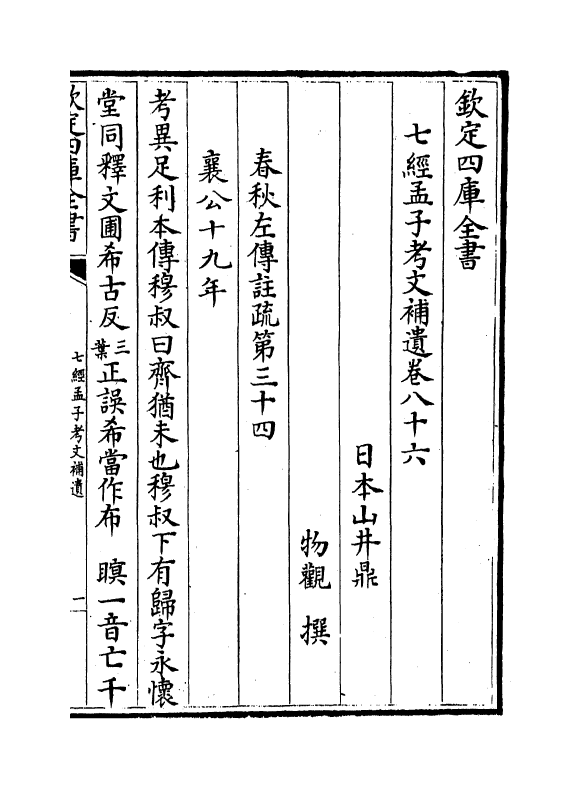 欽定四庫全書
七經孟子考文補遺卷八十六
日本山井鼎
物觀 撰
春秋左傳註疏第三十四
襄公十九年
考異足利本傳穆叔曰齊猶未也穆叔下有歸字永懷
堂同釋文圃希古反三葉正誤希當作布 瞑一音亡千
欽定四庫全書
七經孟子考文補遺
一